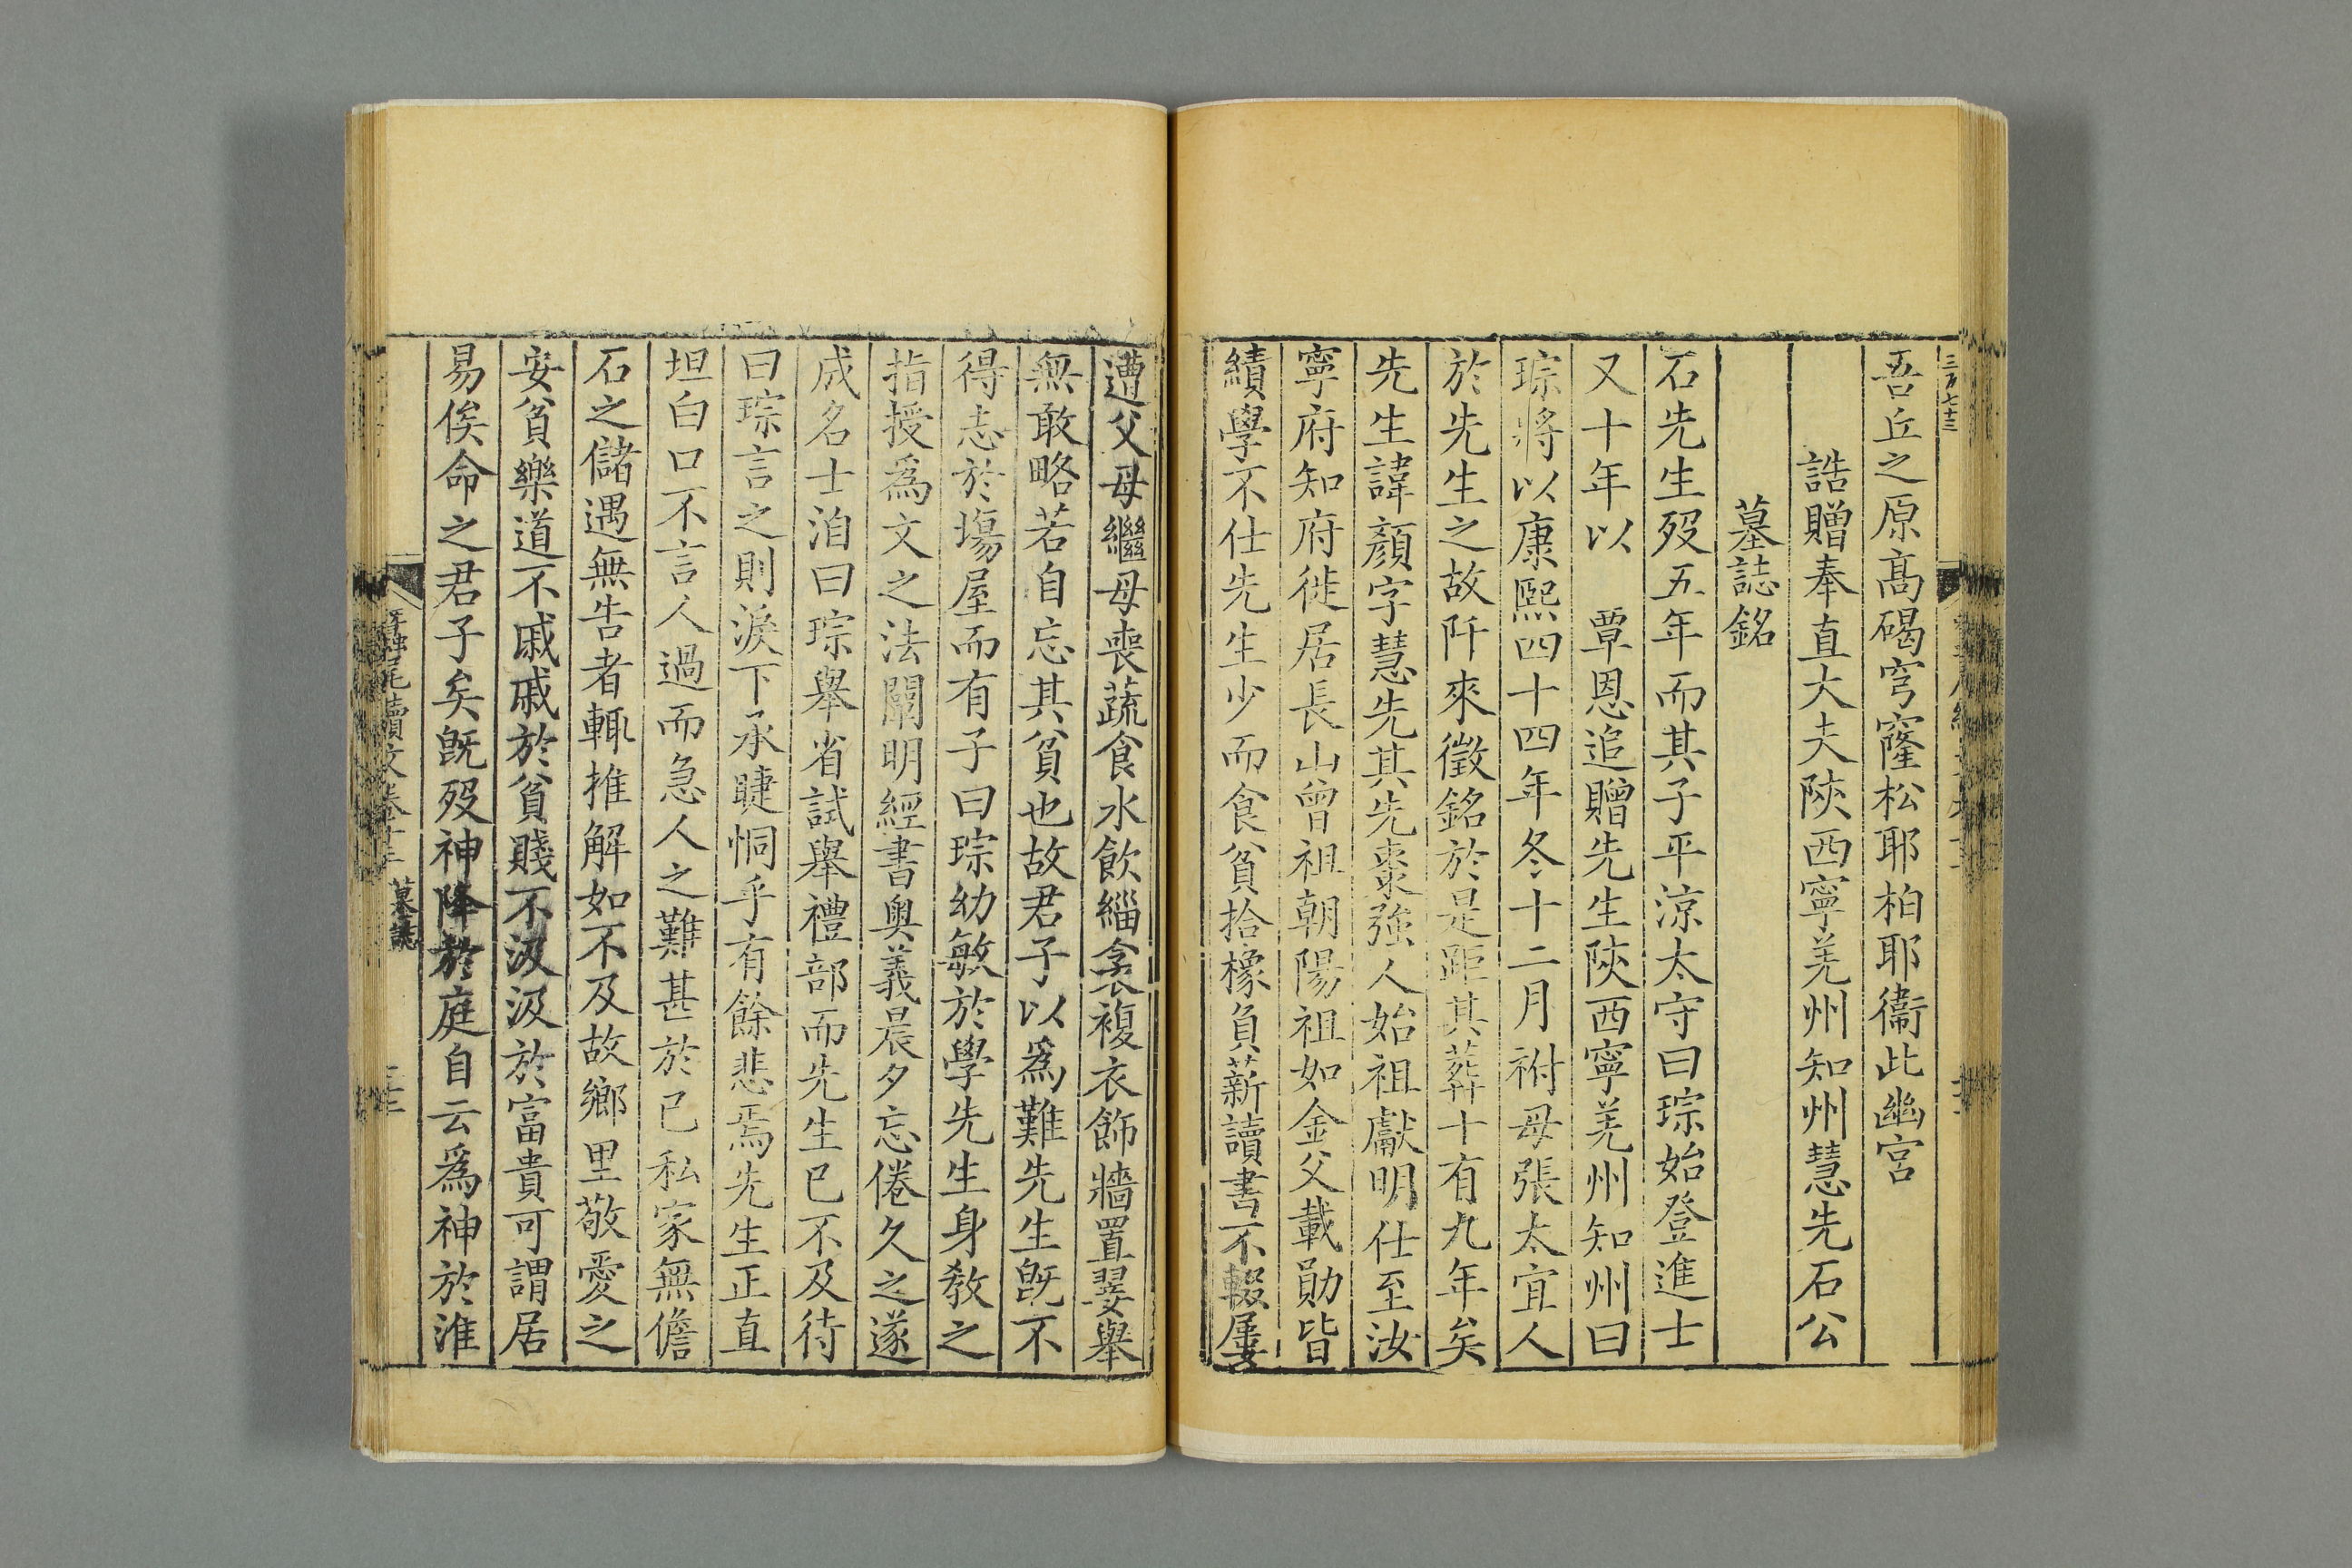 吾丘之原髙碣穹窿松耶柏耶衞此幽宮
誥贈奉直大夫陝西寧羌州知州慧先石公
墓誌銘
石先生歿五年而其子平涼太守曰琮始登進士
又十年以　覃恩追贈先生陝西寧羌州知州曰
琮將以康熙四十四年冬十二月祔母張太宜人
於先生之故阡來徵銘於是距其葬十有九年矣
先生諱顏字慧先其先棗强人始祖獻明仕至汝
寧府知府徙居長山曾祖朝陽祖如金父載勛皆
績學不仕先生少而食貧拾橡負薪讀書不輟屢
遭父母繼母喪蔬食水飲緇衾複衣飾牆置翣舉
無敢略若自忘其貧也故君子以爲難先生旣不
得志於場屋而有子曰琮幼敏於學先生身敎之
指授爲文之法闡明經書奥義晨夕忘倦久之遂
成名士洎曰琮舉省試舉禮部而先生已不及待
曰琮言之則淚下承睫恫乎有餘悲焉先生正直
坦白口不言人過而急人之難甚於已私家無儋
石之儲遇無告者輒推解如不及故鄉里敬愛之
安貧樂道不戚戚於貧賤不汲汲於富貴可謂居
易俟命之君子矣旣歿神降於庭自云爲神於淮
蠶尾續文卷十三　墓誌